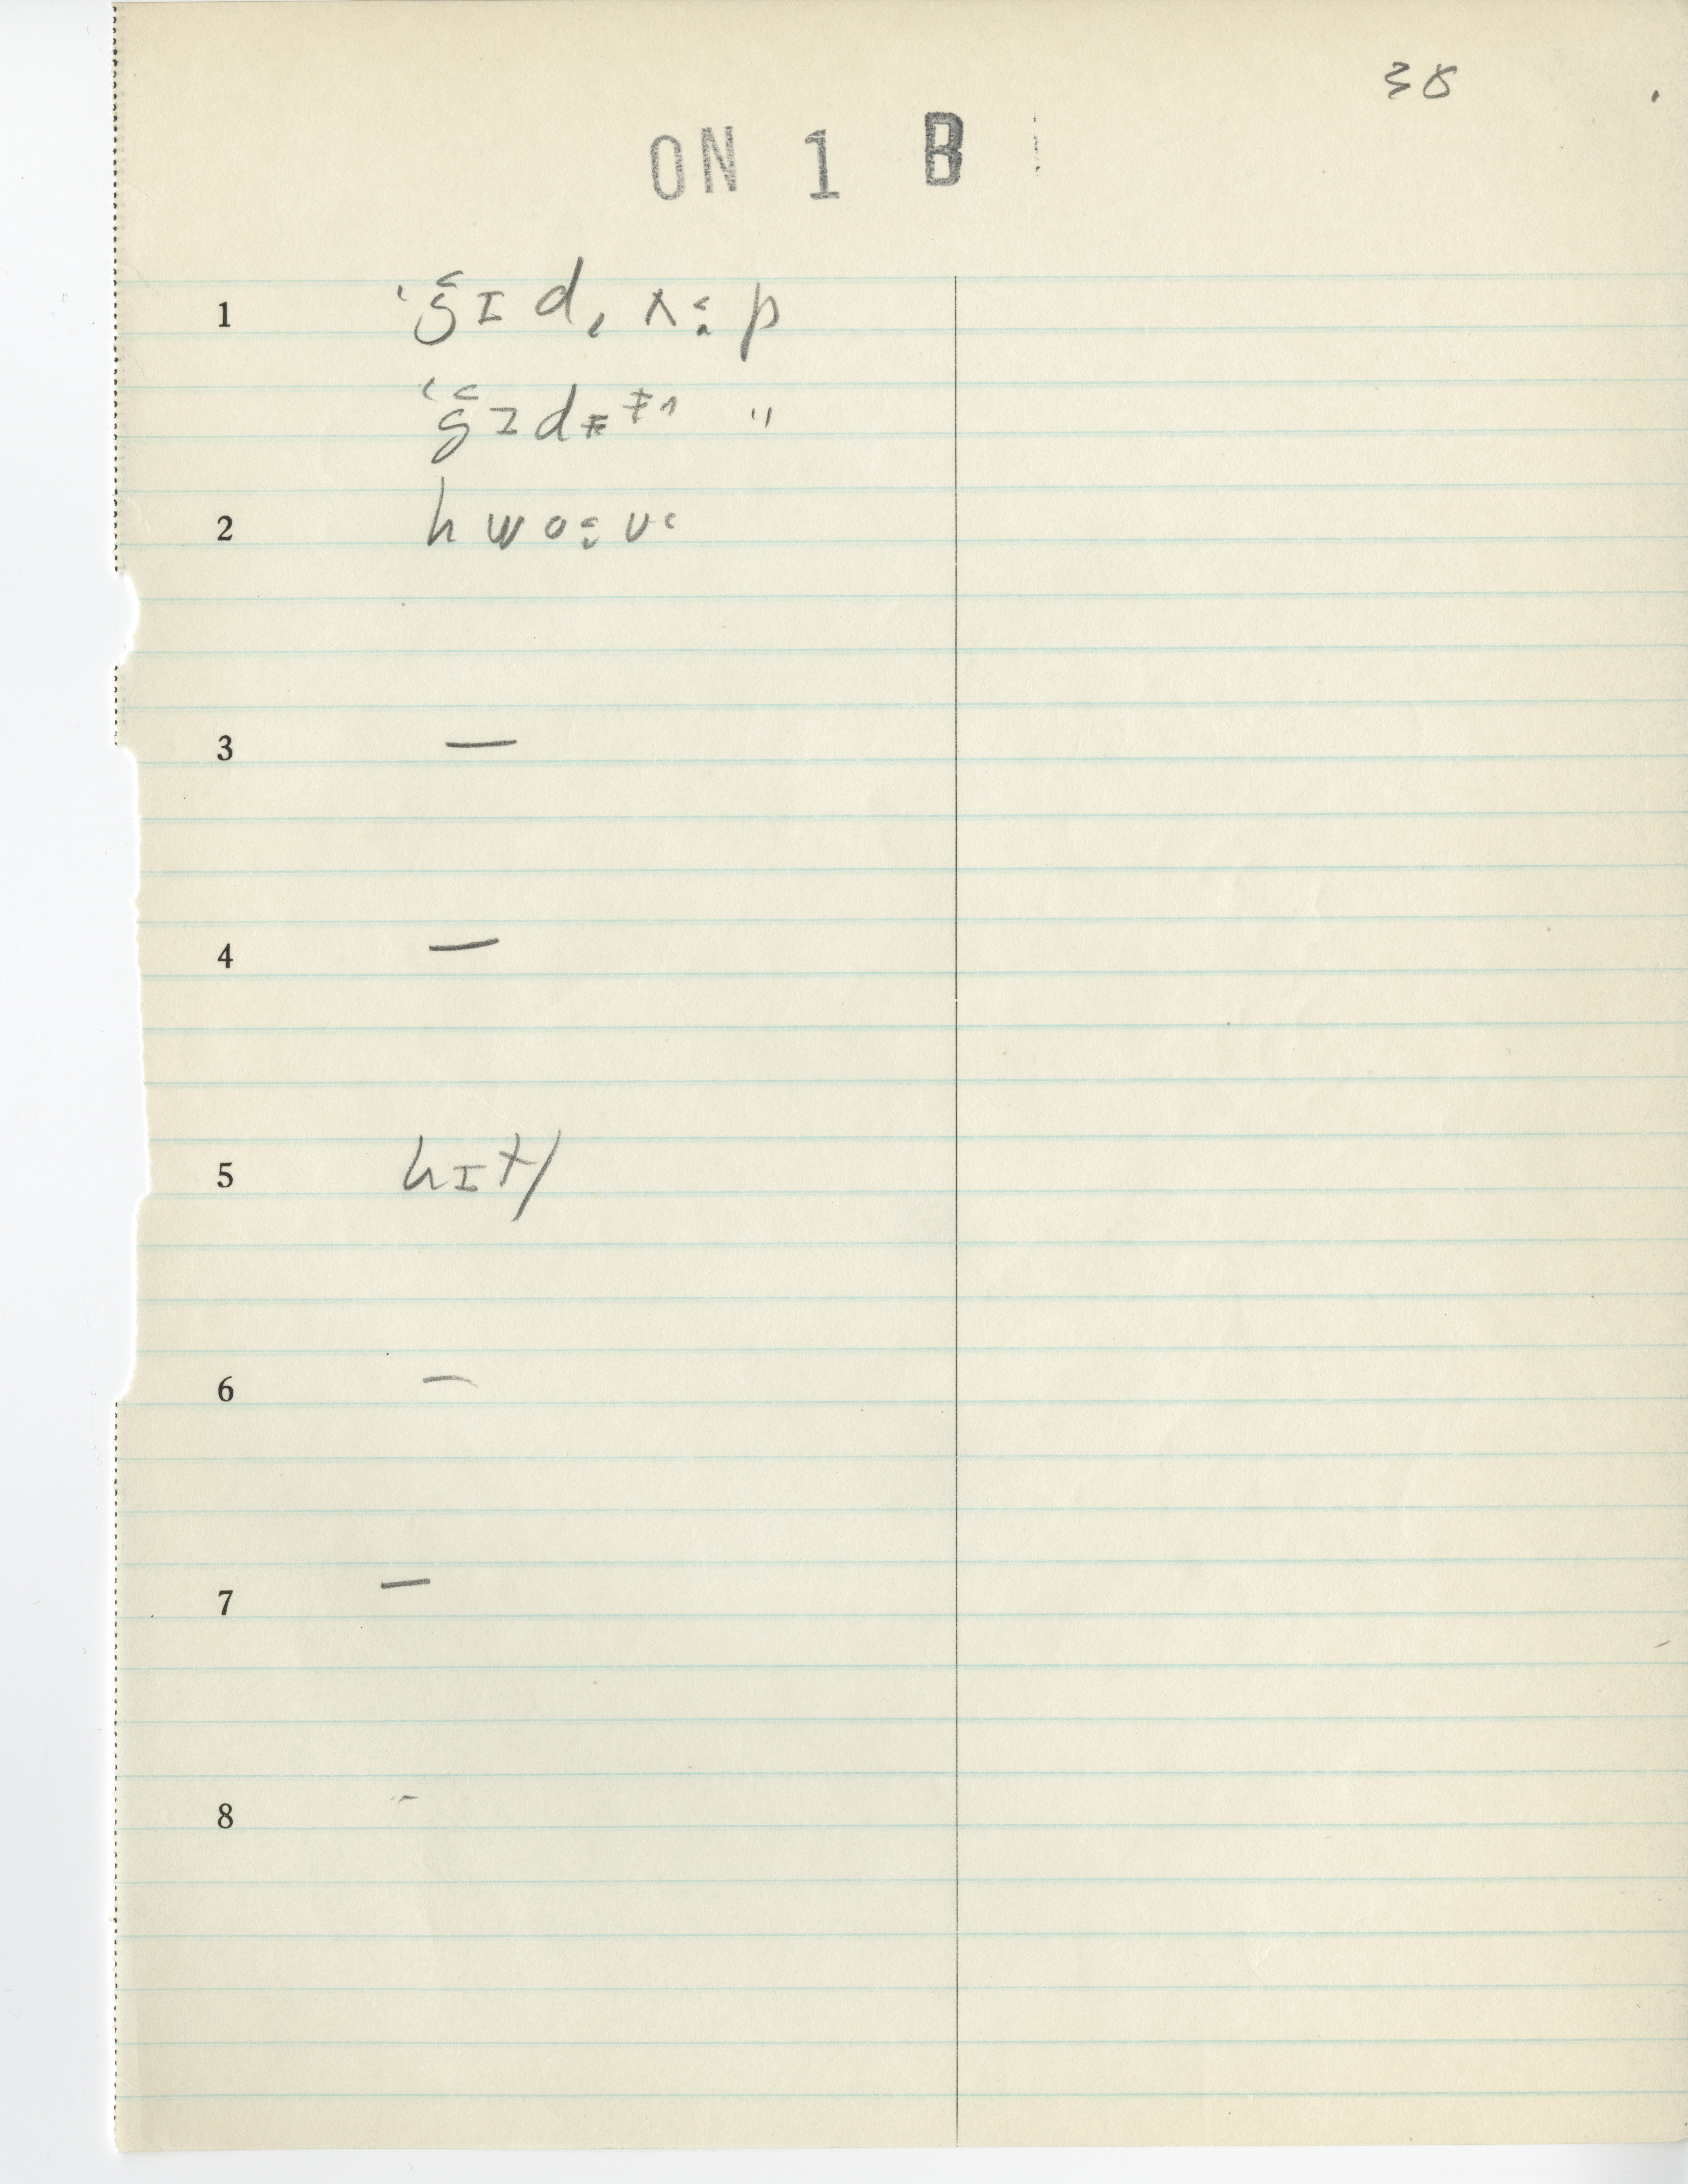 38
ON 1 B
1 'ğɪd, ʌ: p
'ğɪd "
2 hwo:
3 —
4 —
5 hɪt/
6 —
7 —
8 -